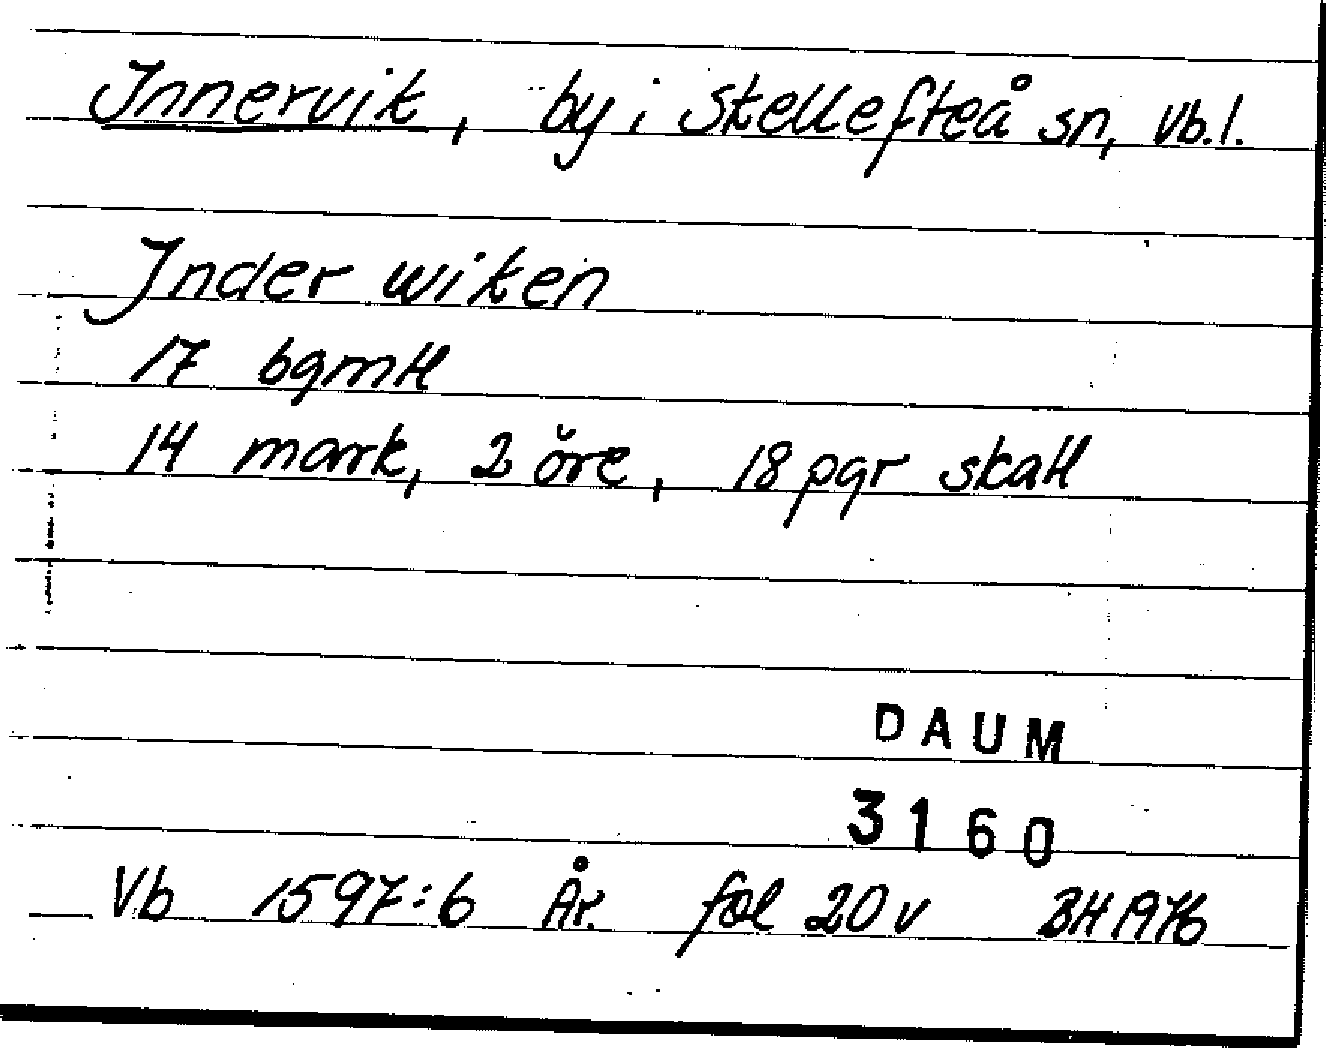 Innervik, by i Skellefteå sn, Vb.l.
Inder wiken
17 bgmtl
14 mark, 2 öre, 18 pgr skatt
DAUM
3160
Vb 1597:6 År. fol 20 v BH 1976